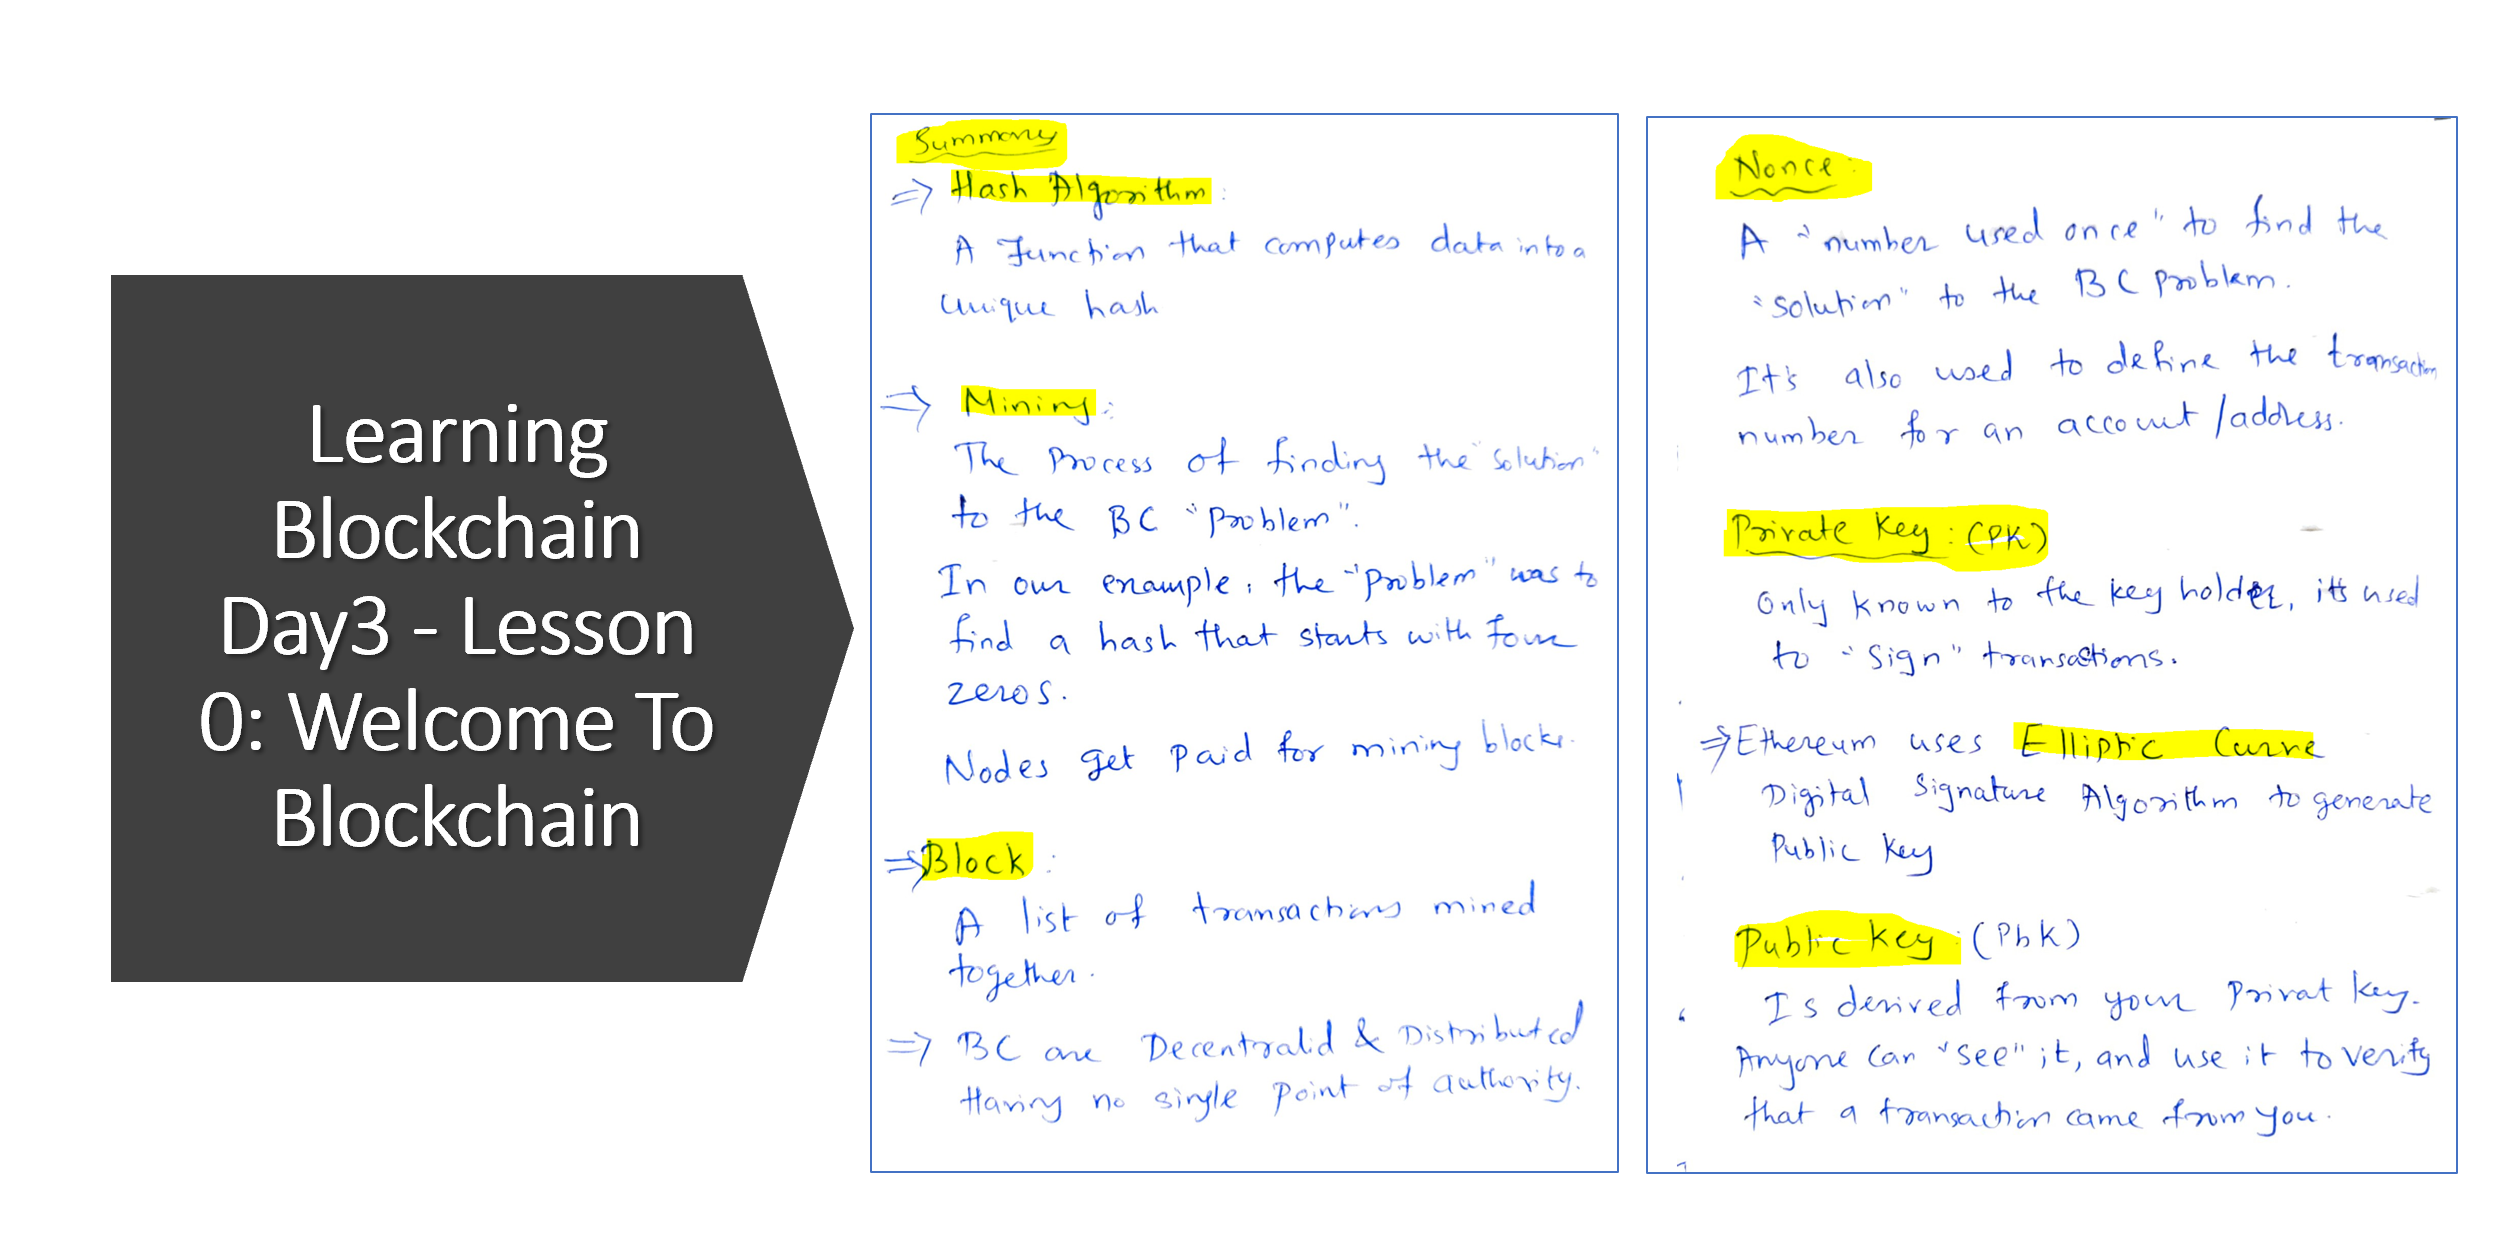 Learning
Blockchain
Day3 - Lesson
0: Welcome To
Blockchain
Summary
⇒ Hash Algorithm:
A function that computes data into a
unique hash
⇒ Mining:
The Process of finding the "solution"
to the BC "Problem".
In our example, the "problem" was to
find a hash that starts with four
zeros.
Nodes get paid for mining blocks.
⇒ Block:
A list of transactions mined
together.
⇒ BC are Decentralid & Distributed
Having no single point of authority.
Nonce:
A "number used once" to find the
"solution" to the BC problem.
It's also used to define the transaction
number for an account/address.
Private Key: (PK)
Only known to the key holder, it's used
to "Sign" transactions.
⇒ Ethereum uses Elliptic Curve
Digital Signature Algorithm to generate
Public Key
Public Key: (PbK)
Is derived from your Privat Key.
Anyone can "see" it, and use it to verify
that a transaction came from you.